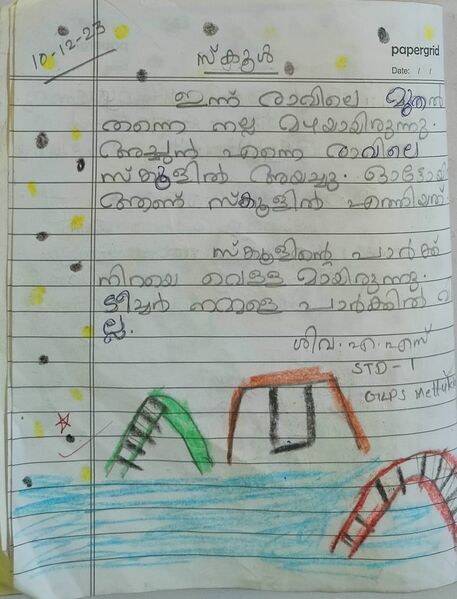 10-12-23
സ്കൂൾ
papergrid
Date: / /
ഇന്ന് രാവിലെ മുതൽ
തന്നെ നല്ല മഴയായിരുന്നു.
അച്ഛൻ എന്നെ രാവിലെ
സ്കൂളിൽ അയച്ചു. ഓട്ടോയി
ആണ് സ്കൂളിൽ എത്തിയത്.
സ്കൂളിന്റെ പാർക്ക്
നിറയെ വെള്ളമായിരുന്നു.
ടീച്ചർ നമ്മളെ പാർക്കിൽ വി
ല്ല.
ശിവ. എ. എസ്
STD - 1
GLPS